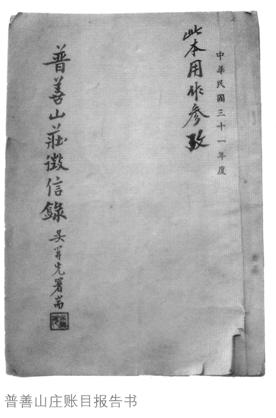 中華民國三十一年度
此本用作參攷
普善山莊徵信錄
吴昇先署耑
普善山庄账目报告书